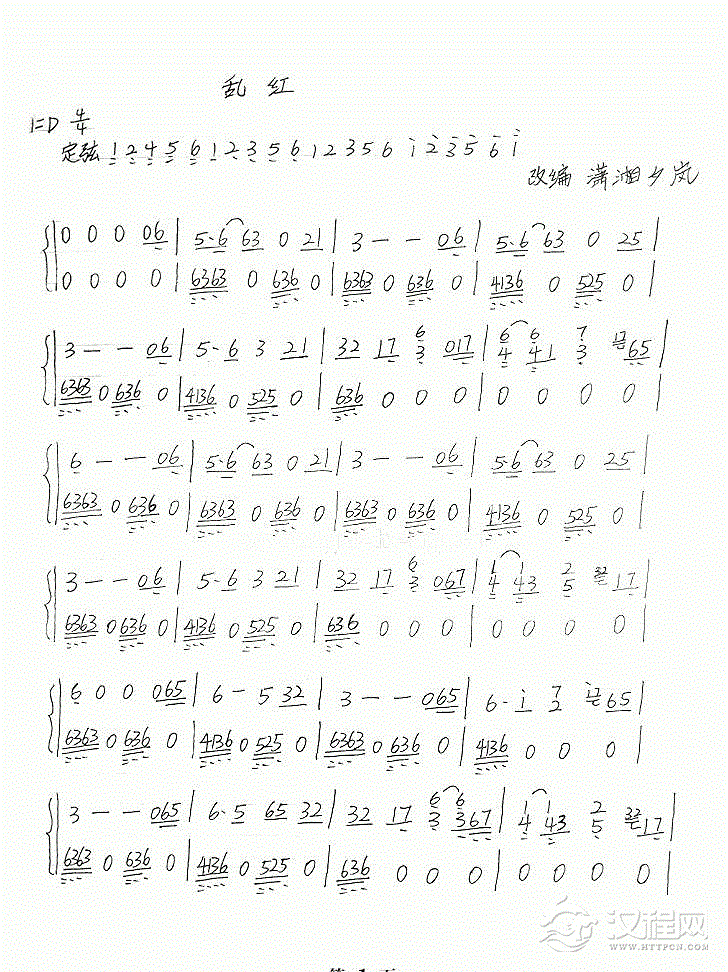 乱 红
1=D 4/4
定弦 1 2 4 5 6 1 2 3 5 6 1 2 3 5 6 i 2 3 5 6 i
改编 潇湘夕岚
0 0 0 06 | 5·6 63 0 21 | 3 — — 06 | 5·6 63 0 25 |
0 0 0 0 | 6363 0 636 0 | 6363 0 636 0 | 4136 0 525 0 |
3 — — 06 | 5·6 3 21 | 32 17 6/3 017 | 6/4 6/41 7/3 65 |
6363 0 636 0 | 4136 0 525 0 | 636 0 0 0 | 0 0 0 0 |
6 — — 06 | 5·6 63 0 21 | 3 — — 06 | 5·6 63 0 25 |
6363 0 636 0 | 6363 0 636 0 | 6363 0 636 0 | 4136 0 525 0 |
3 — — 06 | 5·6 3 21 | 32 17 6/3 067 | 1/4 1/43 2/5 17 |
6363 0 636 0 | 4136 0 525 0 | 636 0 0 0 | 0 0 0 0 |
6 0 0 065 | 6 — 5 32 | 3 — — 065 | 6· i 7/2 65 |
6363 0 636 0 | 4136 0 525 0 | 6363 0 636 0 | 4136 0 0 0 |
3 — — 065 | 6·5 65 32 | 32 17 6/3 6/367 | 1/4 1/43 2/5 17 |
6363 0 636 0 | 4136 0 525 0 | 636 0 0 0 | 0 0 0 0 |
汉程网
WWW.HTTPCN.COM